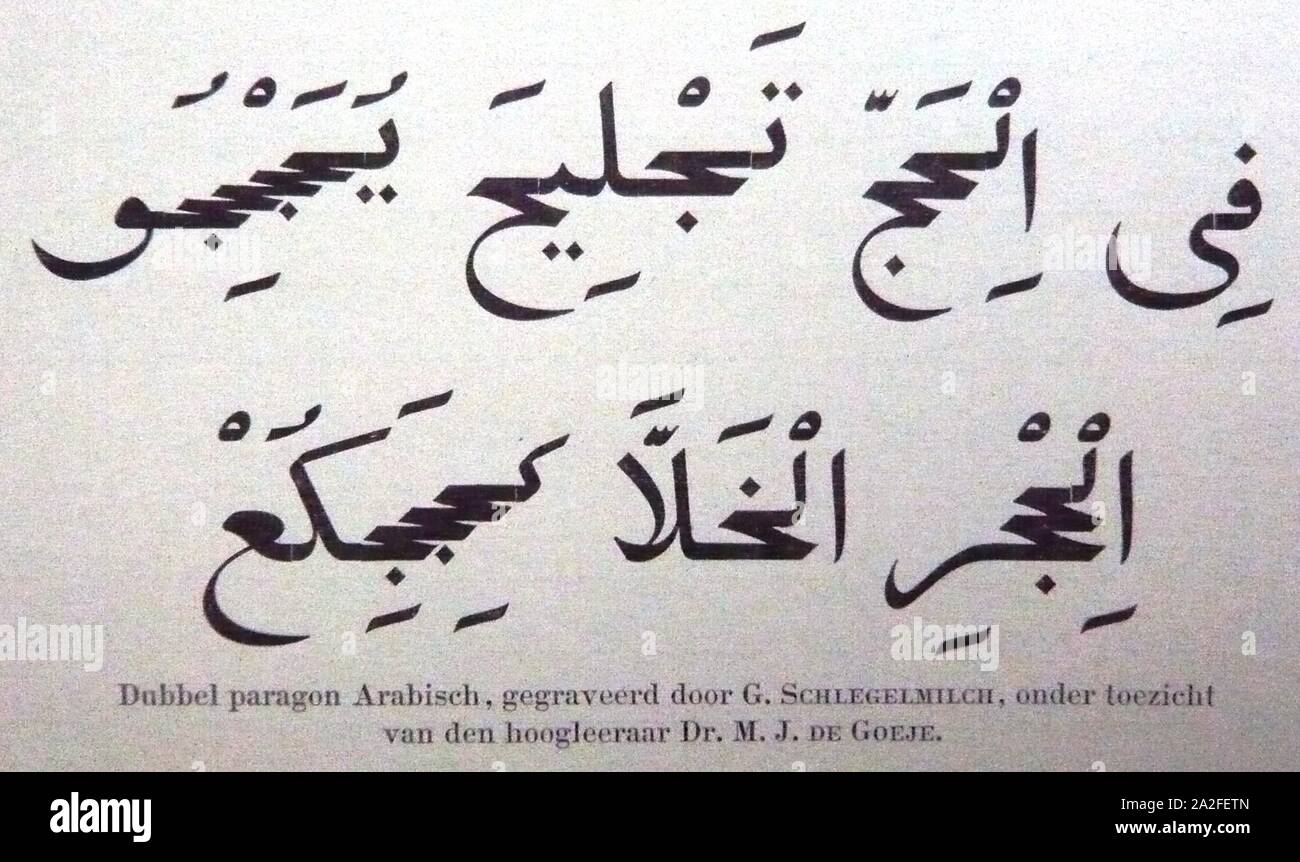 فِى اِلْحَجّ تَجْلِيحَ
اِلْجْرِ الْخَلاَّ
Dubbel paragon Arabisch, gegraveerd door G. SCHLEGELMILCH, onder toezicht
van den hoogleeraar Dr. M. J. DE GOEJE.
alamy
Image ID: A2FETN
www.alamy.com